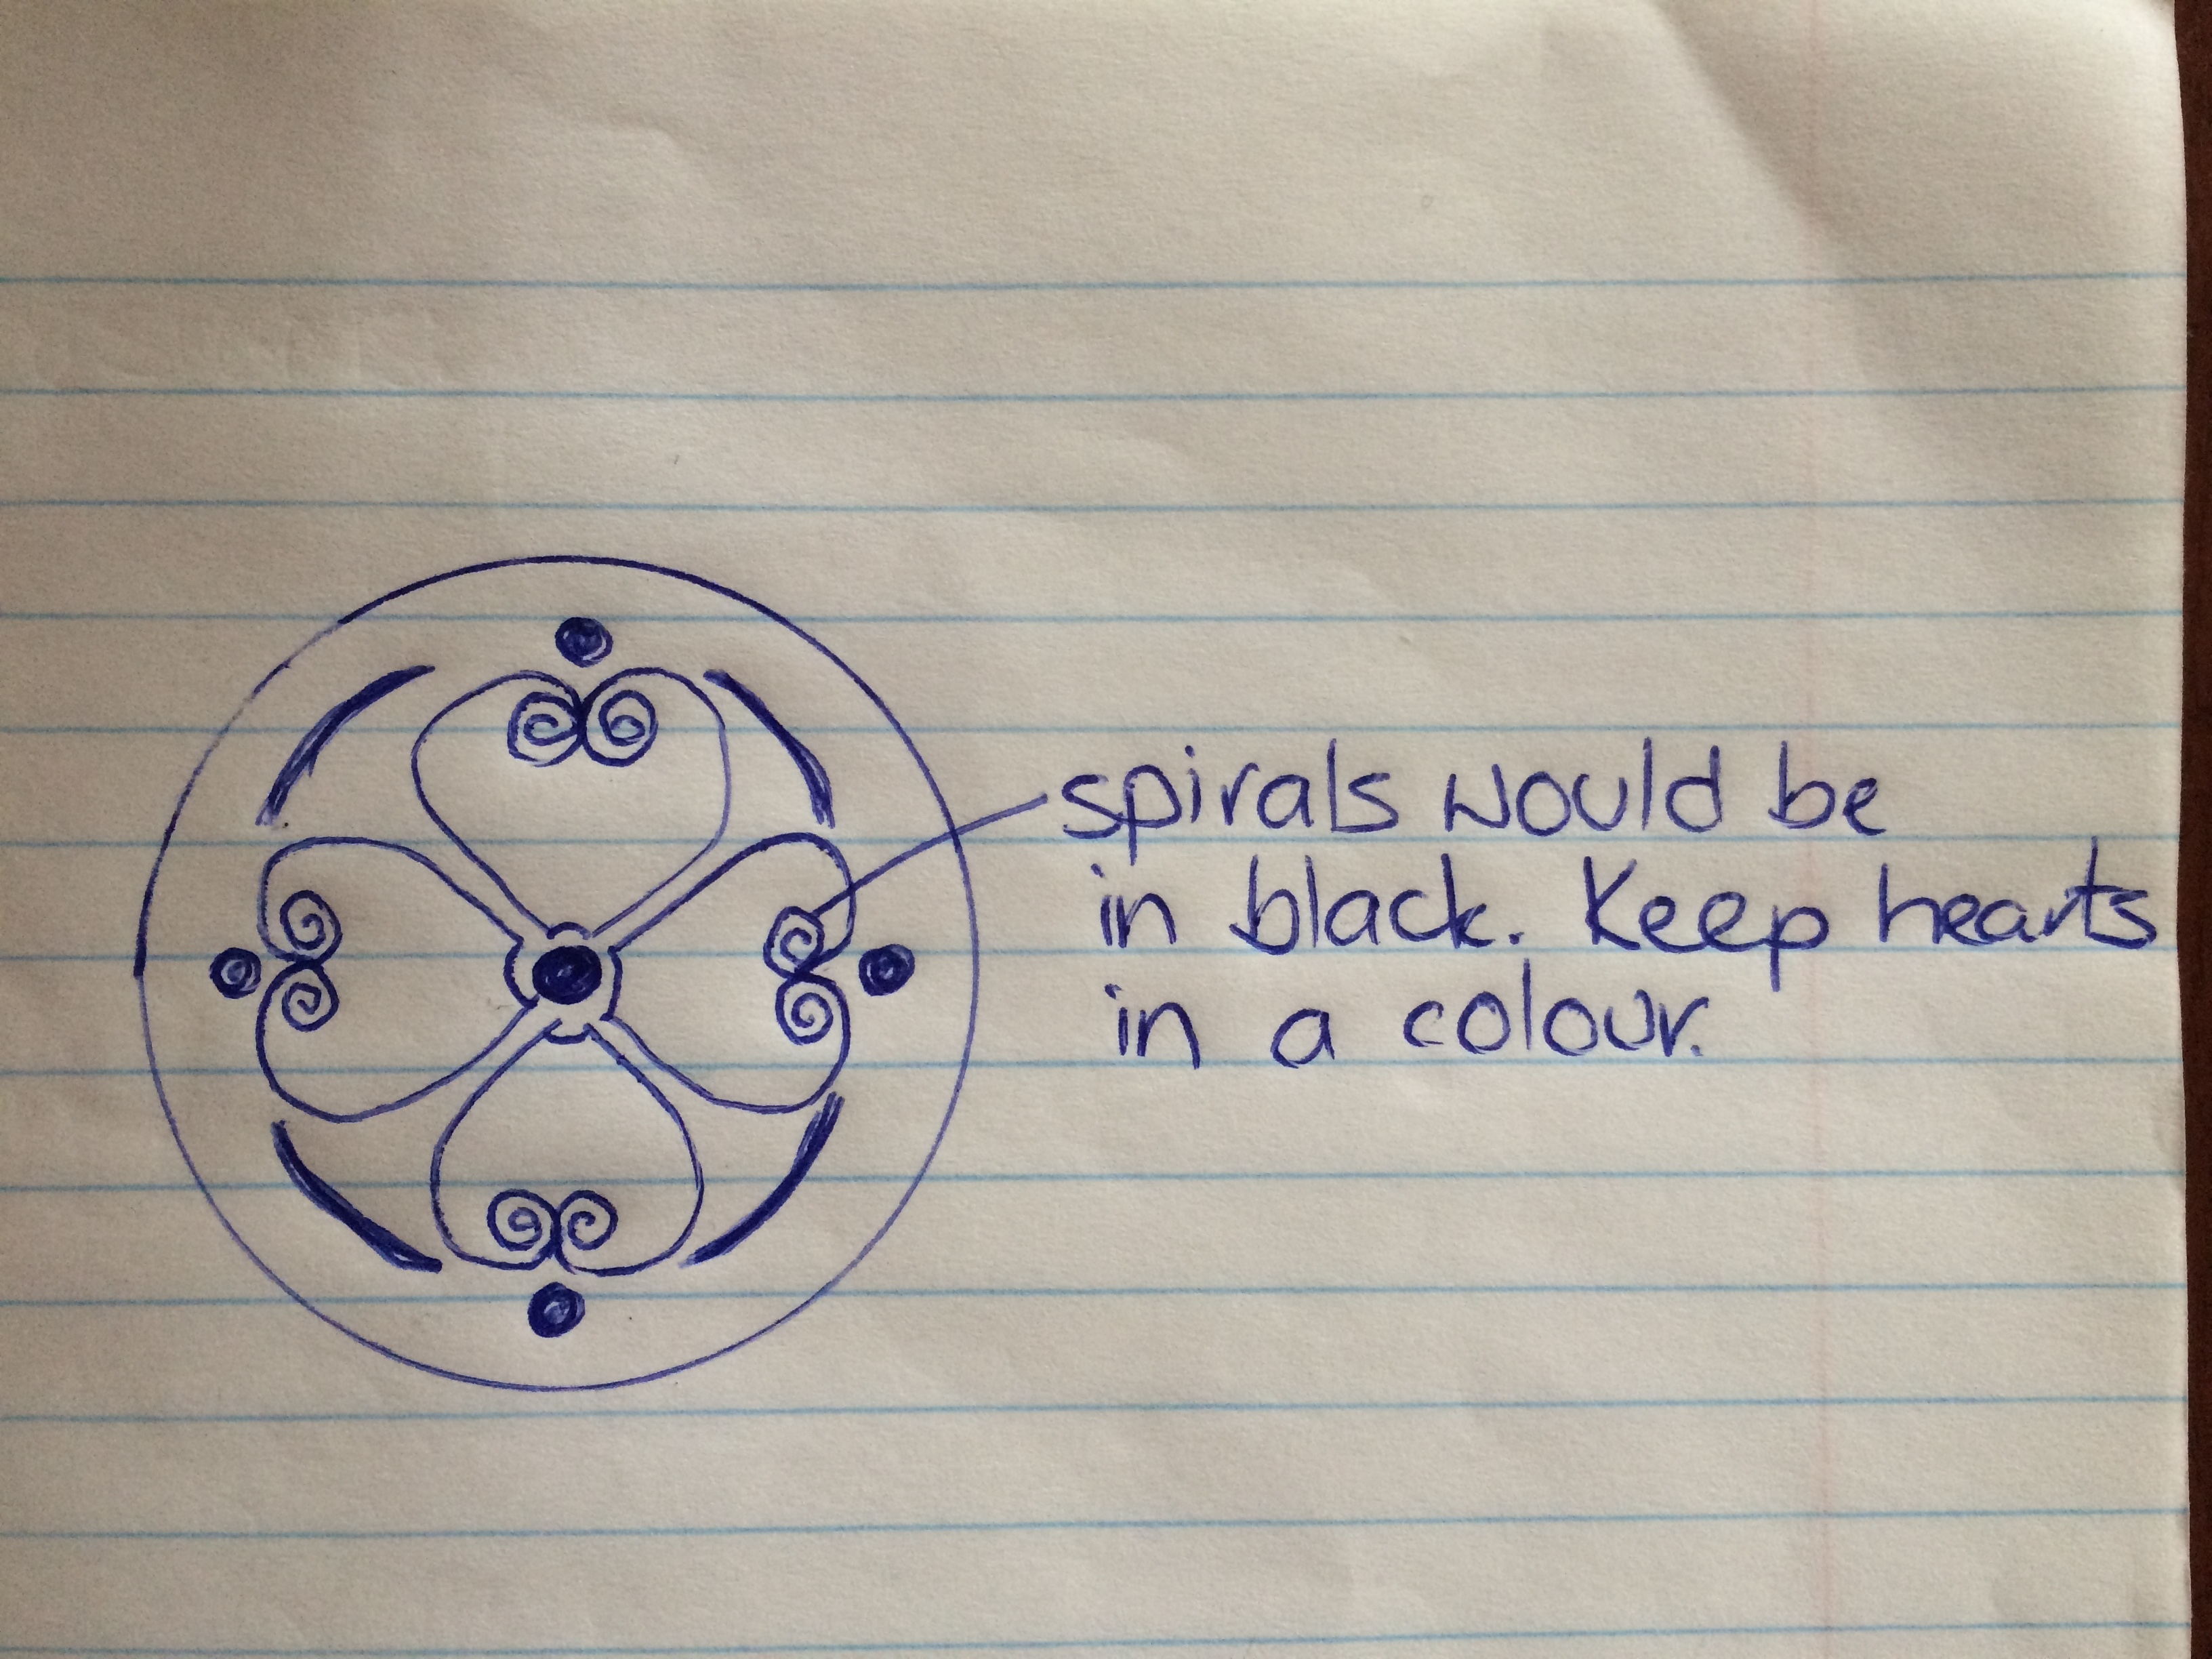 spirals would be
in black. Keep hearts
in a colour.